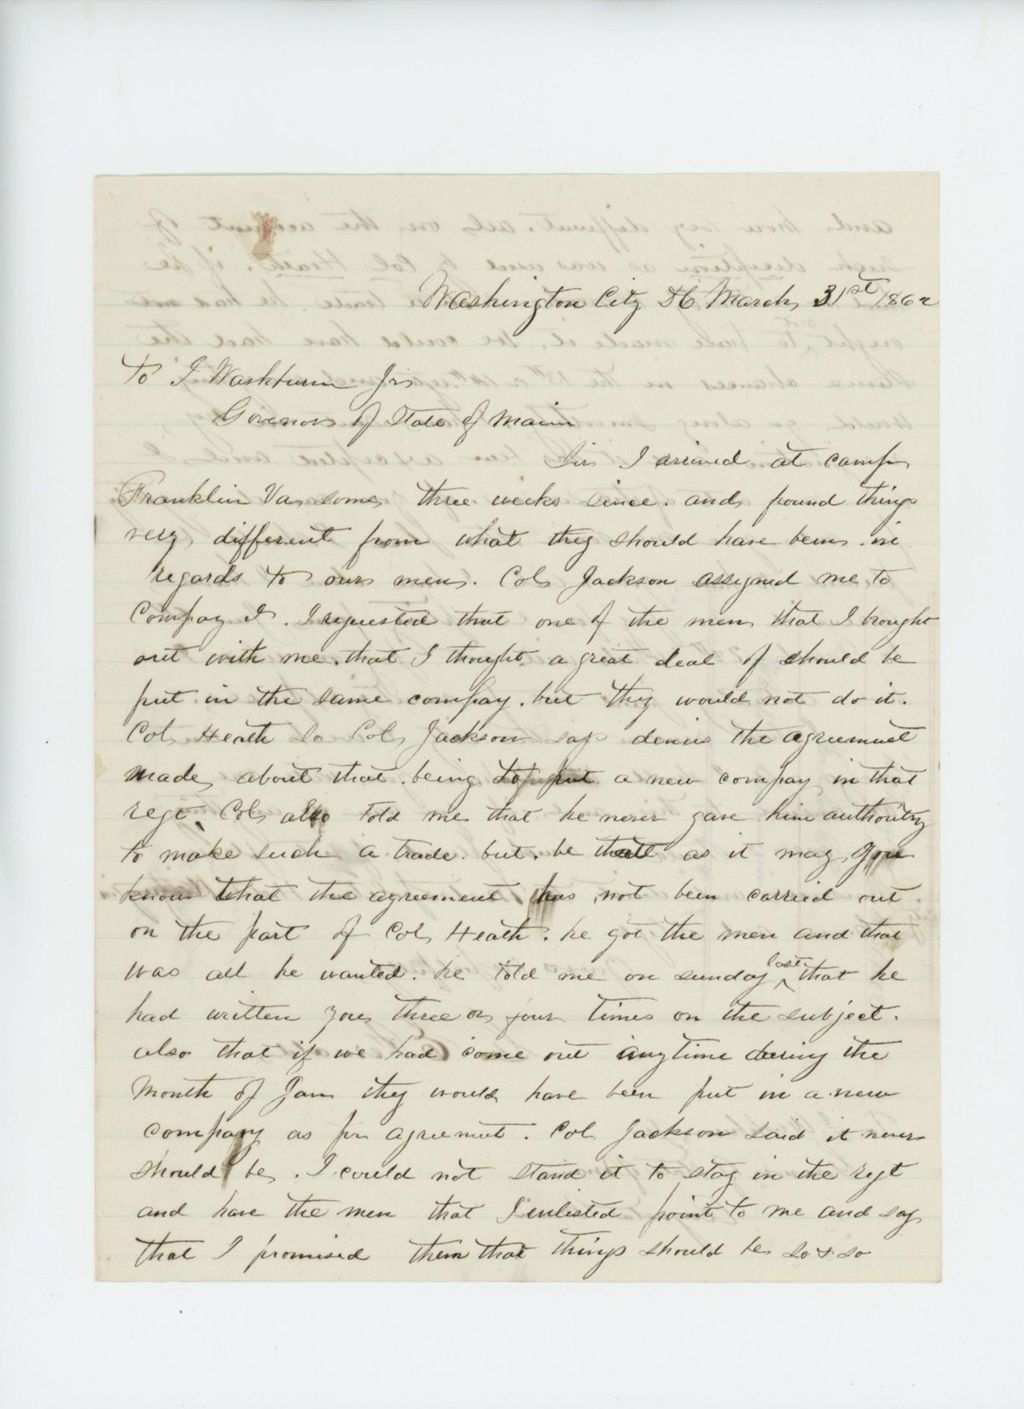 Washington City DC March 31st 1862
To I Washburn Jr
Governor of State of Maine
Sir I arrived at camp
Franklin Va some three weeks since. and found things
very different from what they should have been. in
regards to our men. Col Jackson assigned me to
Compay I. I requested that one of the men that I brought
out with me. that I thought a great deal of should be
put in the same compay. but they would not do it.
Col Heath so Col Jackson says denies the agreement
made about that. being to put a new compay in that
regt. Col also told me that he never gave him authority
to make such a trade. but. be that as it may you
know that the agreement has not been carried out
on the part of Col Heath. he got the men and that
was all he wanted. he told me on sunday last that he
had written you three or four times on the subject.
also that if we had come out anytime during the
Month of Jan they would have been put in a new
company as per agreement. Col Jackson said it never
should be. I could not stand it to stay in the regt
and have the men that I enlisted point to me and say
that I promised them that things should be so & so